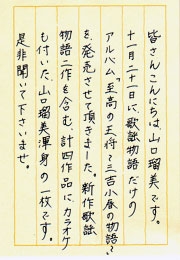 皆さんこんにちは、山口瑠美です。
十一月二十一日に、歌謡物語だけの
アルバム「至高の王将～三吉小春の物語～」
を、発売させて頂きました。新作歌謡
物語二作を含む、計四作品に、カラオケ
も付いた、山口瑠美渾身の一枚です。
是非聞いて下さいませ。